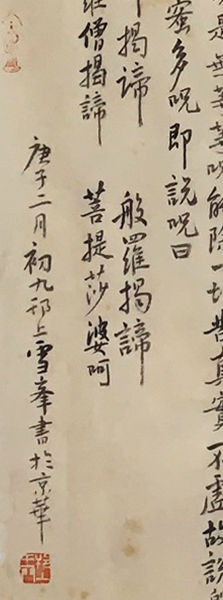 是無等等咒能除一切苦真實不虛故說
蜜多咒即說咒曰
揭諦 般羅揭諦
羅僧揭諦 菩提莎婆呵
庚子二月初九邗上雪峯書於京華